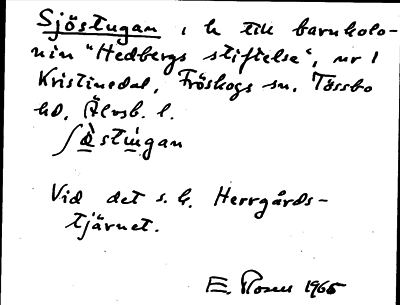 Sjöstugan, h till barnkolo-
nin "Hedbergs stiftelse", nr 1
Kristinedal, Fröskogs sn. Tössbo
hd, Älvsb. l.
ʃö̀stùgan
Vid det s.k. Herrgårds-
tjärnet.
E. Rosen 1965